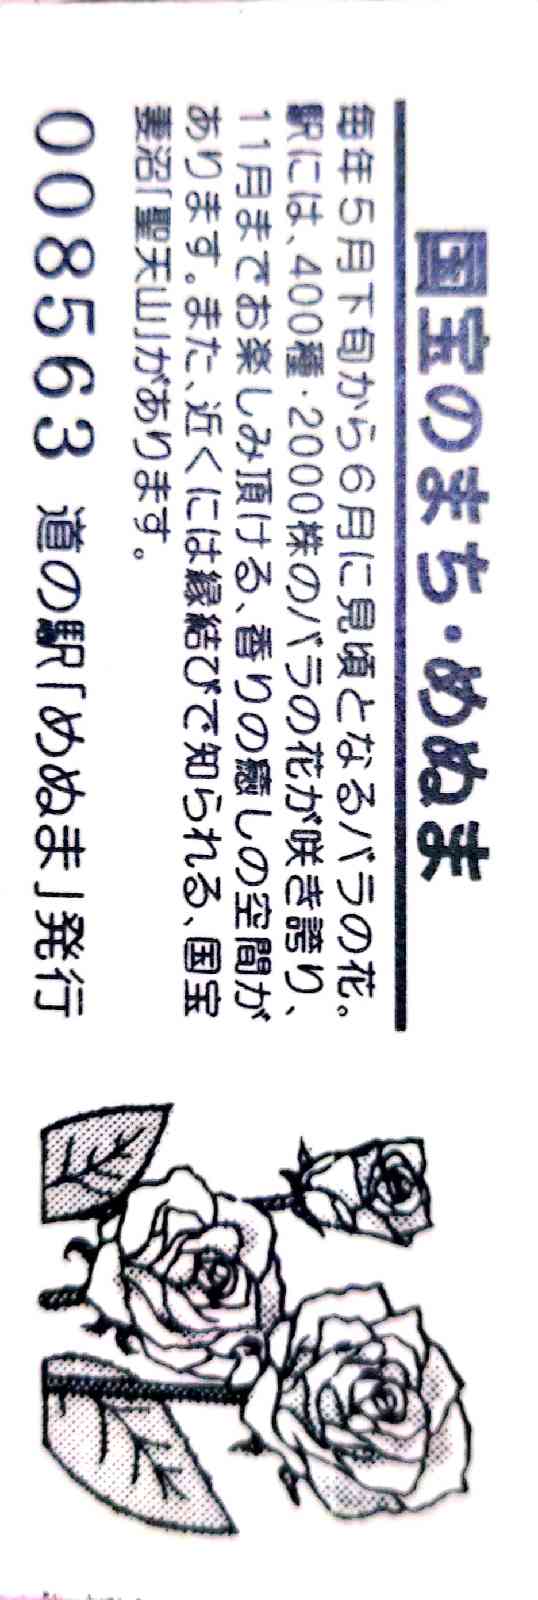 国宝のまち・めぬま
毎年5月下旬から6月に見頃となるバラの花。
駅には、400種・2000株のバラの花が咲き誇り、
11月までお楽しみ頂ける、香りの癒しの空間が
あります。また、近くには縁結びで知られる、国宝
妻沼「聖天山」があります。
008563 道の駅「めぬま」発行